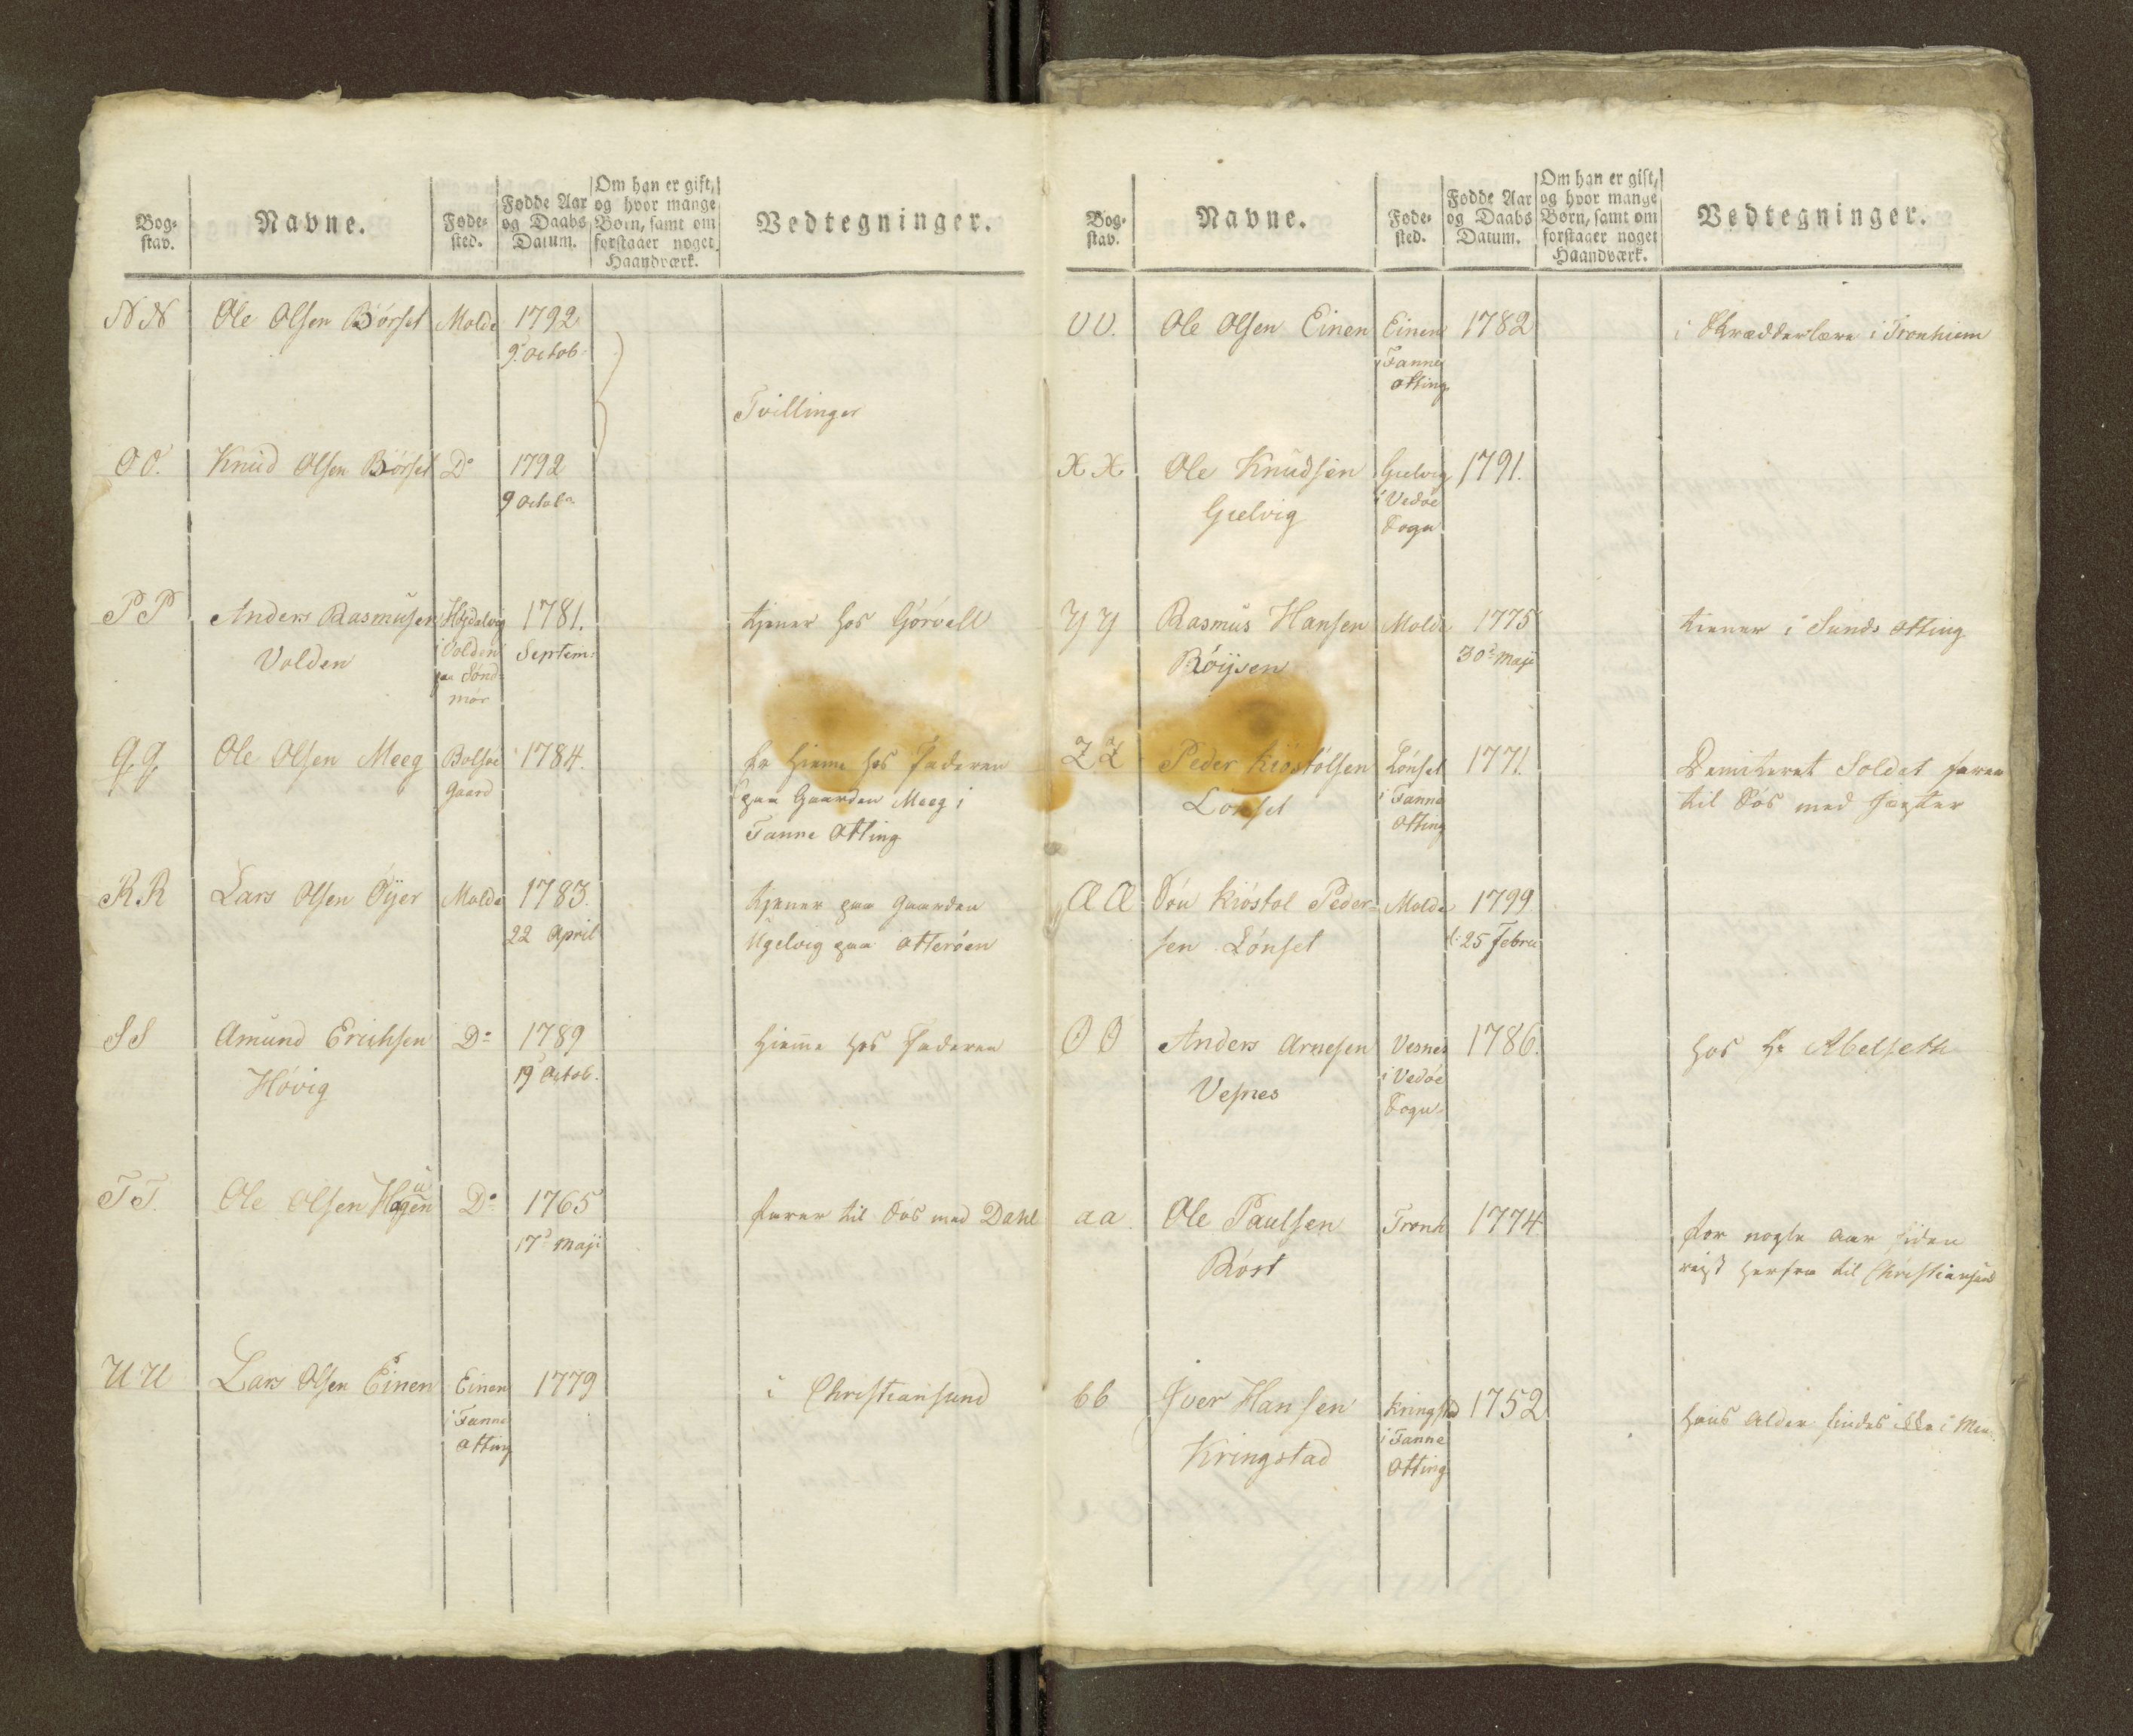 Bog-
stav.
Navne.
Føde-
sted.
Fødde Aar
og Daabs
Datum.
Om han er gift,
og hvor mange
Børn, samt om
forstaaer noget
Haandværk.
Vedtegninger.
NN Ole Olsen Börset Molde 1792
9de Octob:
Tvillinger
OO. Knud Olsen Börset Do 1792
9 Octobr
PP Anders Rasmusen
Volden
i Volden
paa Sönd-
mör
1781.
Septem:
tjener hos Görvell
QQ Ole Olsen Meeg Bolsöe
Gaard
1784.
er hieme hos Faderen
paa Gaarden Meeg i
Fanne Otting
RR Lars Olsen Öyer Molde 1783.
22 April
tjener paa Gaarden
Ugelvig paa Otteröen
SS Amund Erichsen
Hövig
Do 1789
19de Octob.
hiemme hos Faderen
TT. Ole Olsen Haugen Do 1765
17de Maji
farer til Søs med Dahl
UU Lars Olsen Einen Einen
i Fanne
Otting
1779
i Christiansund
Bog-
stav.
Navne.
Føde-
sted.
Fødde Aar
og Daabs
Datum.
Om han er gift,
og hvor mange
Børn, samt om
forstaaer noget
Haandværk.
Vedtegninger.
VV. Ole Olsen Einen Einen
i Fanne
Otting
1782
i Skrædderlære i Tronhiem
XX Ole Knudsen
Gielvig
Gielvig
i Vedöe
Sogn
1791.
YY Rasmus Hansen
Röysen
Molde 1775
30te Maji
tiener i Sunds Otting
ZZ Peder Kiöstölsen
Lönset
Lönset
i Fanne
Otting
1771.
Demiteret Soldat farer
til Søs med Jægter
ÆÆ Sön Kiöstol Peder-
sen Lönset
Molde 1799
d: 25 Febru
ØØ Anders Arnesen
Vesnes
Vesnes
i Vedöe
Sogn
1786.
hos Hr Abelseth
aa. Ole Paulsen
Röst
Tronh 1774
for nogle Aar siden
reist herfra til Christiansund
bb Iver Hansen
Kringstad
Kringstad
i Fanne
Otting
1752
hans Alder findes ikke i